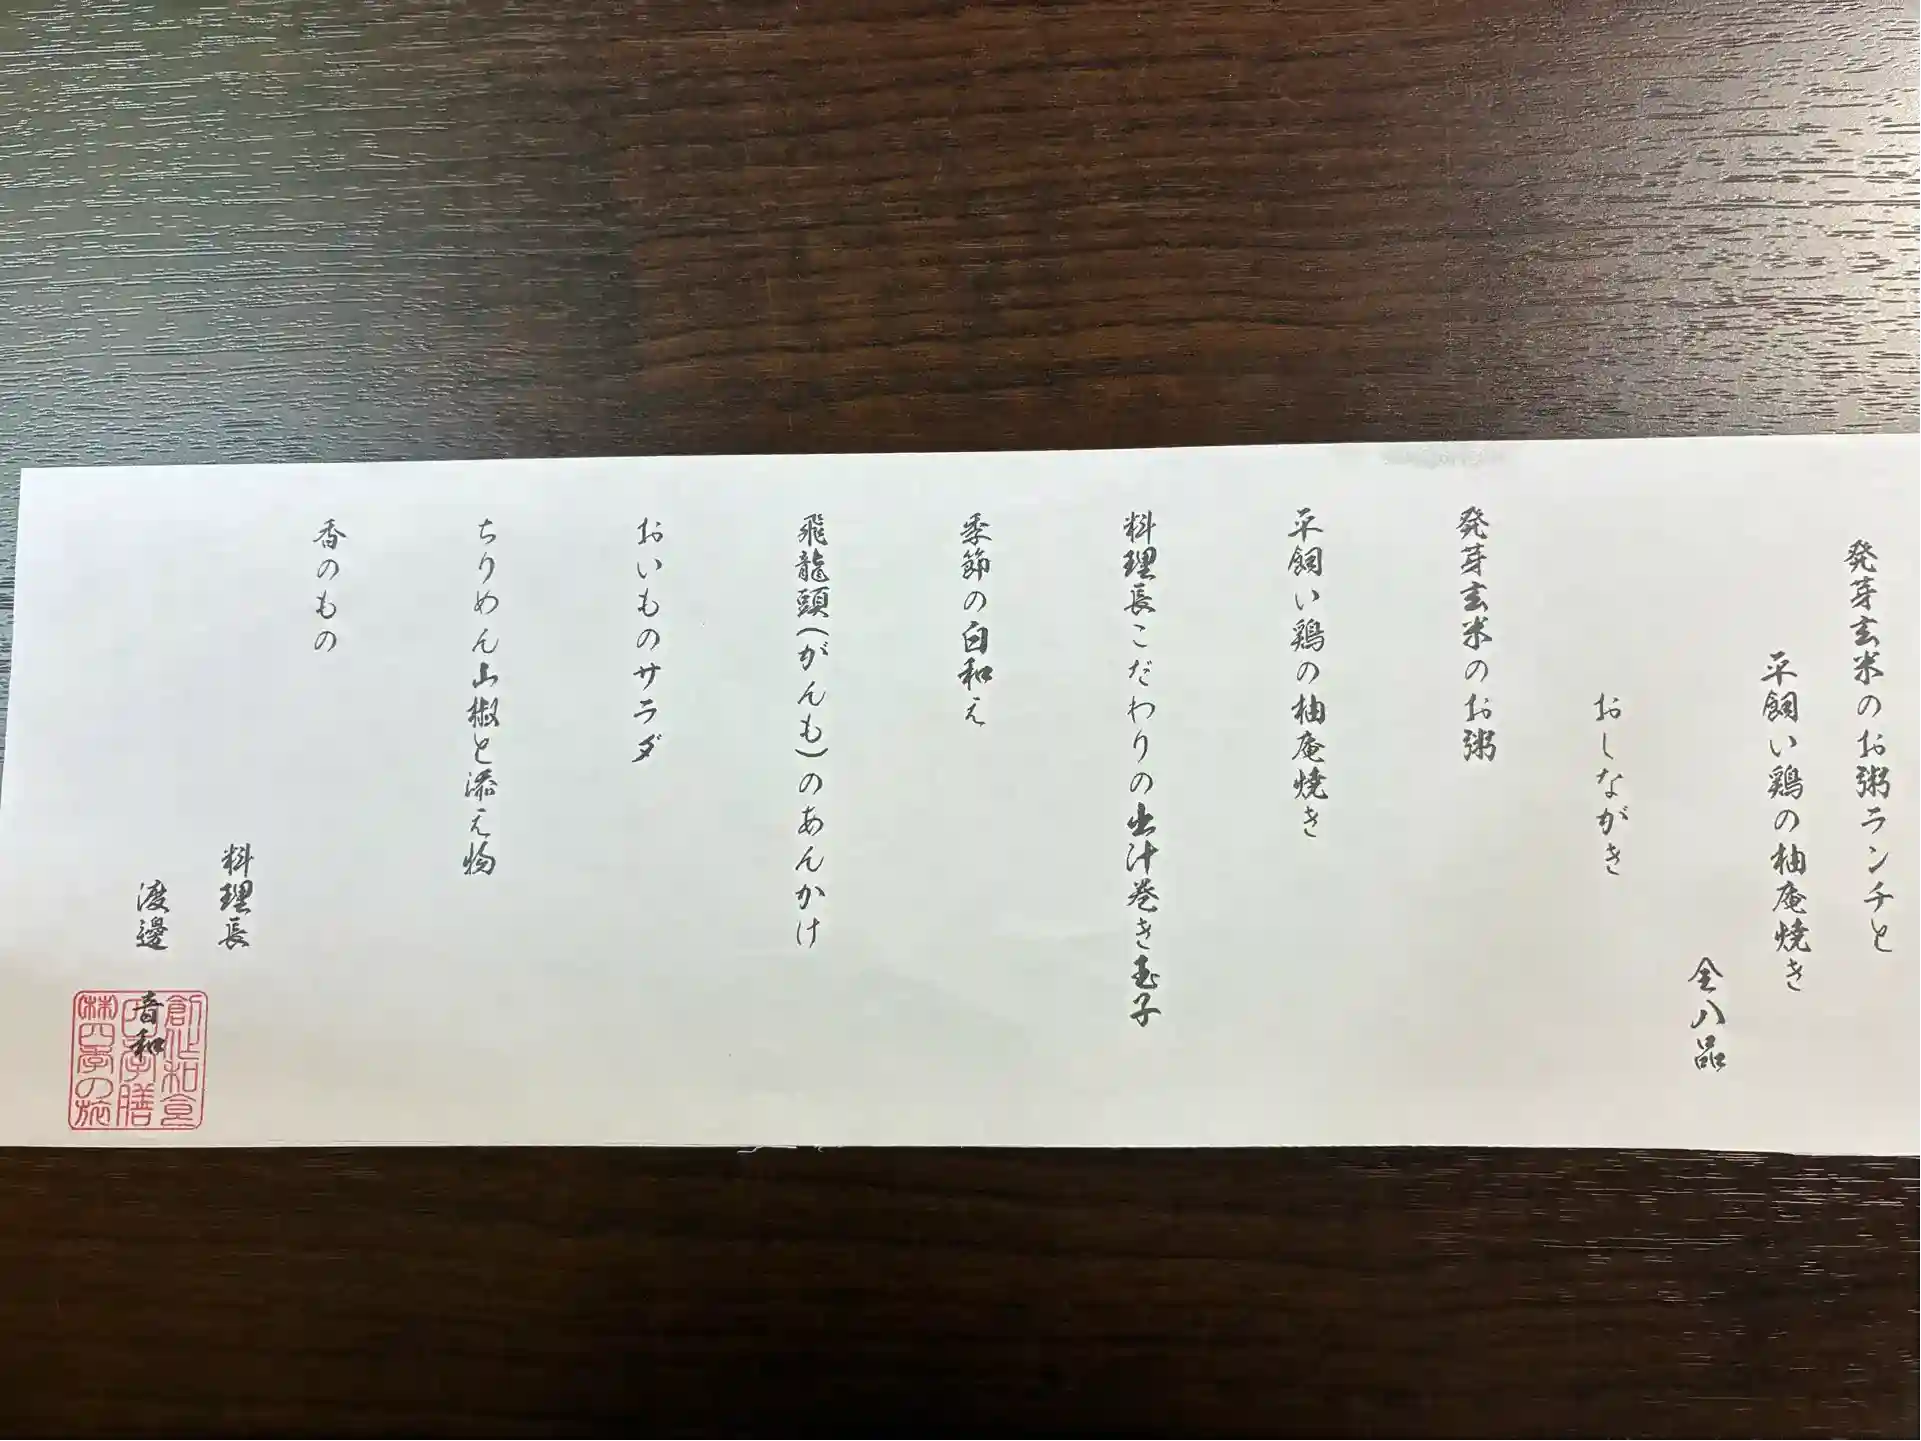 発芽玄米のお粥ランチと
平飼い鶏の柚庵焼き
全八品
おしながき
発芽玄米のお粥
平飼い鶏の柚庵焼き
料理長こだわりの出汁巻き玉子
季節の白和え
飛龍頭(がんも)のあんかけ
おいものサラダ
ちりめん山椒と添え物
香のもの
料理長
渡邊 音和
創作和食
四季膳
㈱四季の旅